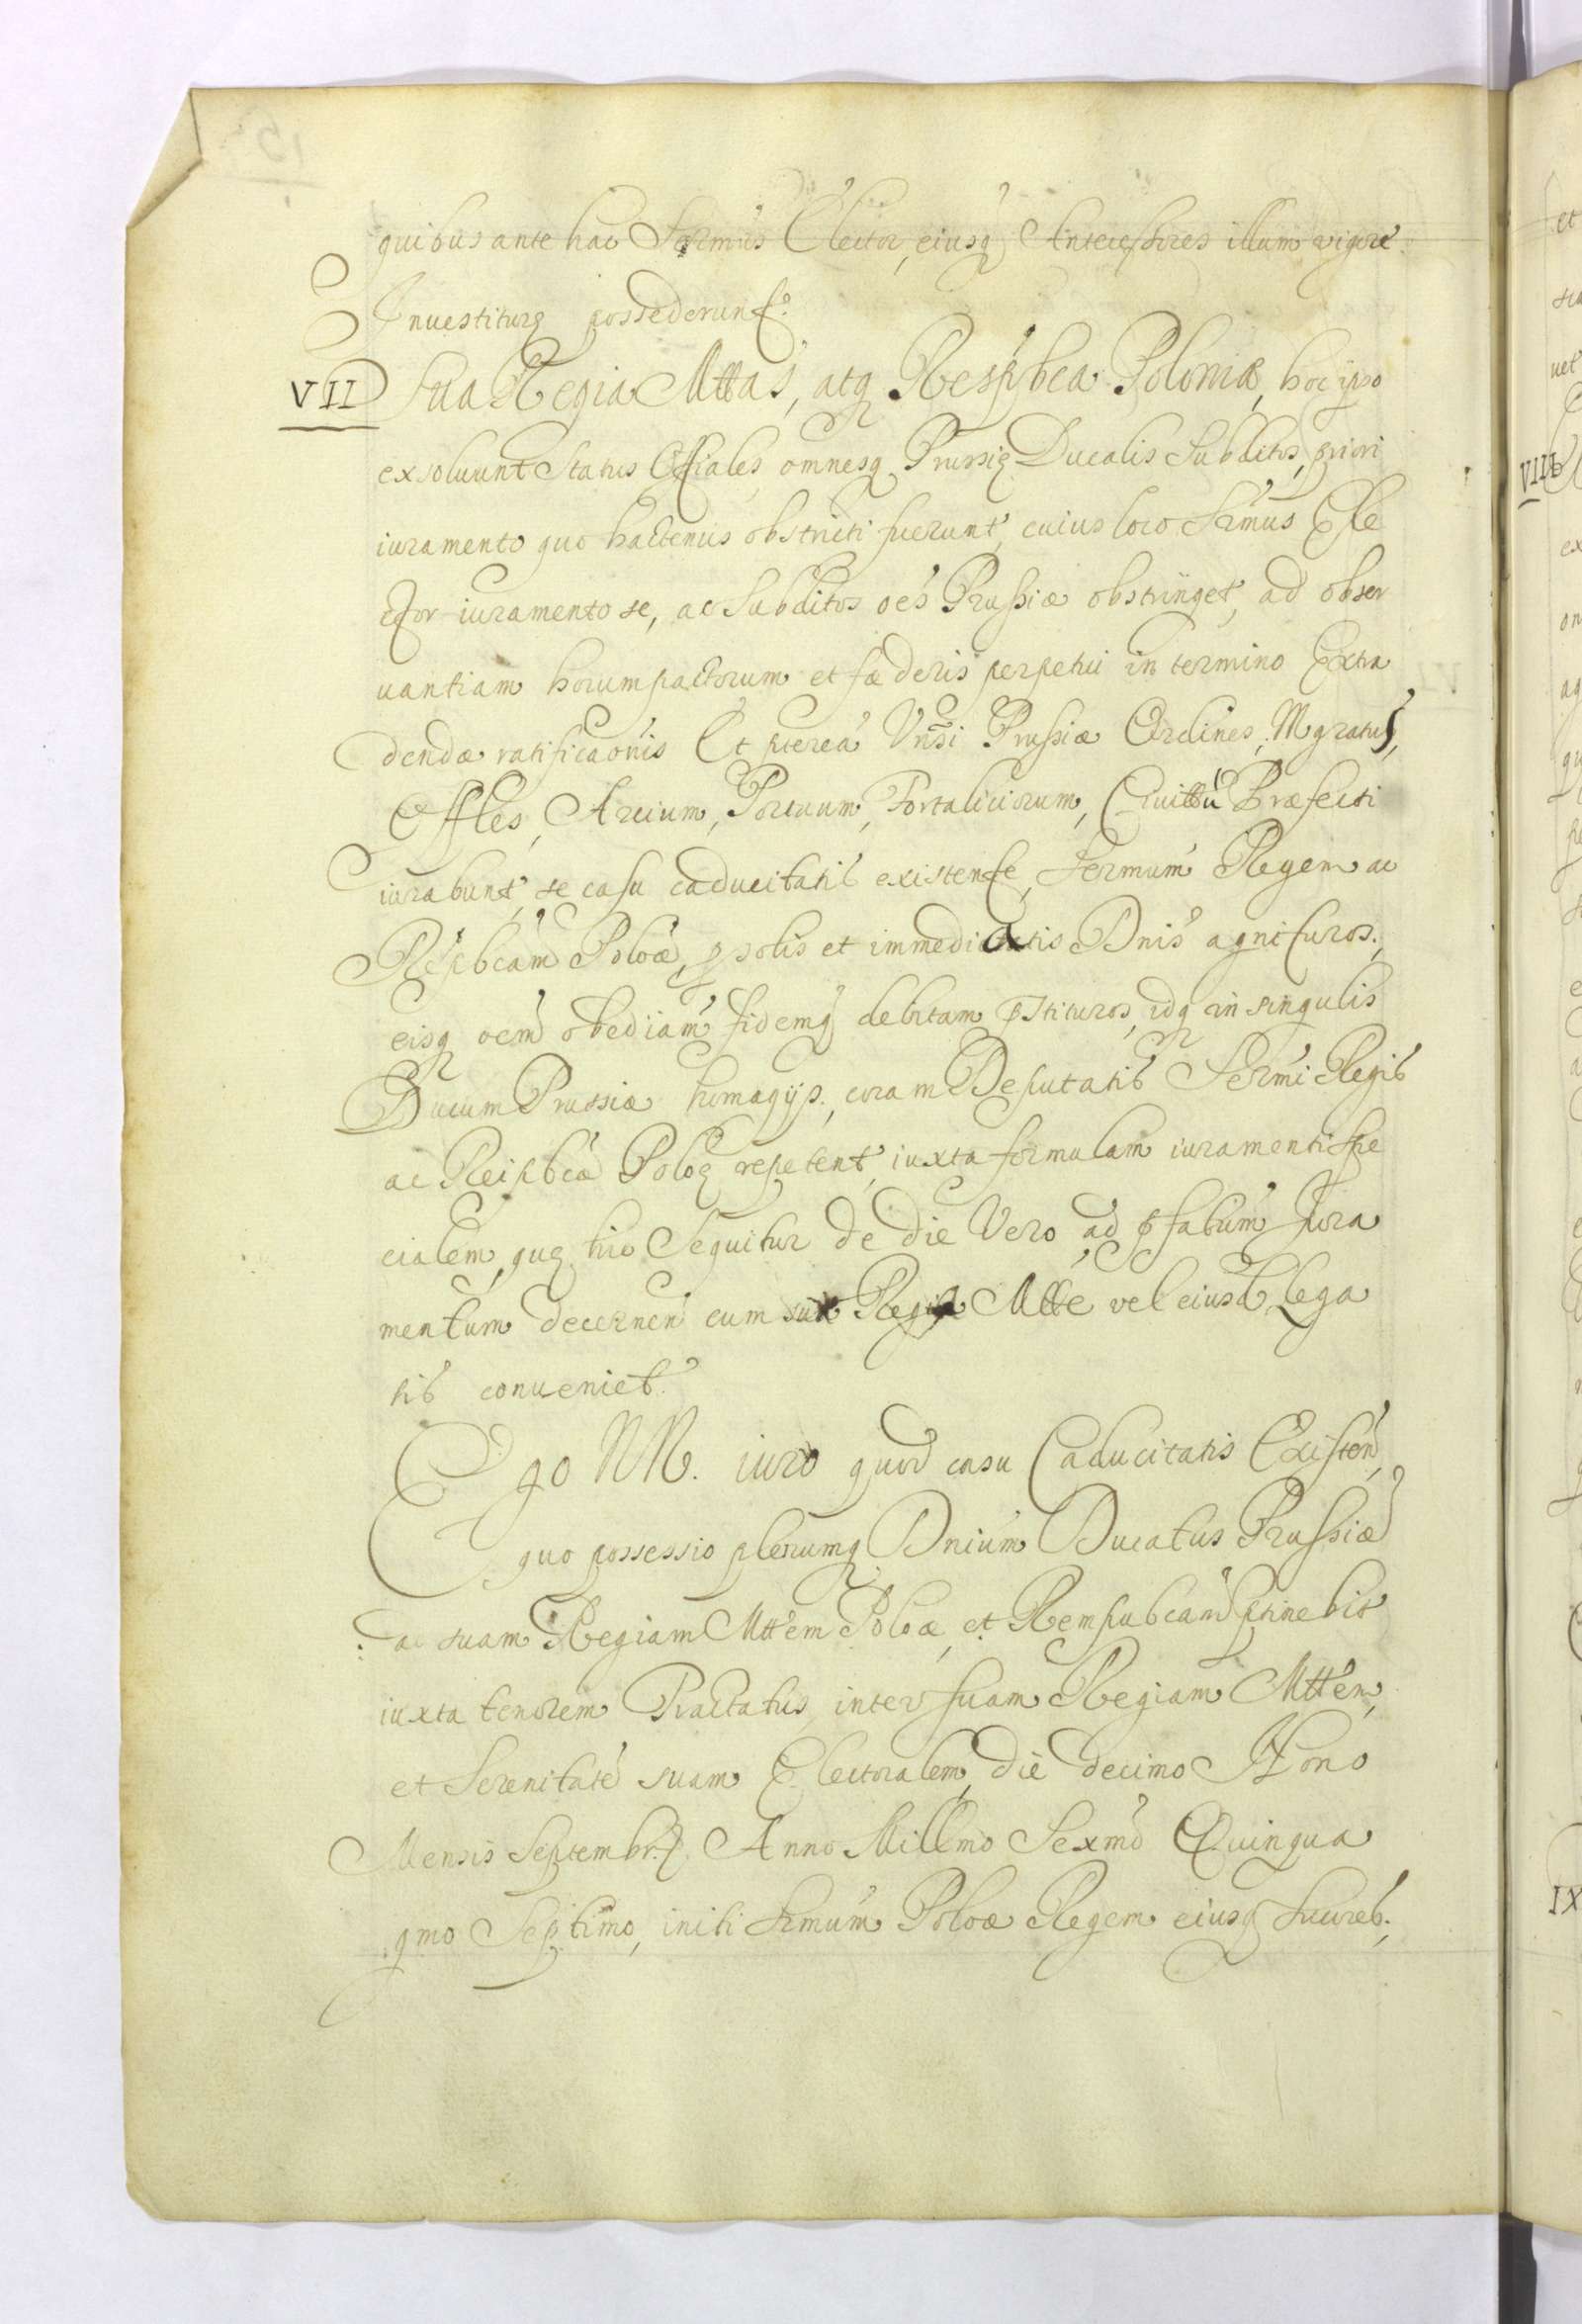 quibus ante hac Sermus Elector, eiusq Antecessores illum vigore
Inuestiturę possederunt.
VII Sua Regia Mttas, atq Respbca Poloniæ, hoc ipso
exsoluunt Status Offiales omnesq Prussię Ducalis Subditos, priori
iuramento quo hactenus obstricti fuerunt, cuius loco Sermus Ele
ctor iuramento se, ac Subditos oes Prussiæ obstringet, ad obser
uantiam horum pactorum et fæderis perpetui in termino Extra
dendæ ratificaonis Et pterea Vnsi Prussiæ Ordines, Mgratus,
Offles, Arcium, Portuum, Fortaliciorum, Ciuittu Præfecti
iurabunt, se casu caducitatis existente, Sermum Regem ac
Respbcam Poloæ, p solis et immediatis Dnis agnituros,
eisq oem obediam fidemq debitam pstituros, idq in singulis
Ducum Prussiæ homagijs, coram Deputatis Sermi Regis
ac Reipbcæ Poloę repetent, iuxta formulam iuramenti Spe
cialem, quę hic Sequitur de die Vero ad pfatum Jura
mentum decernen cum sua Regia Mtte vel eiusd Lega
tis conueniet.
Ego NN. iuro quod casu Caducitatis Existen,
quo possessio plenumq Dnium Ducatus Prussiæ
ac suam Regiam Mttem Poloæ, et Rempubcam ptinebit
iuxta tenorem Tractatus, inter suam Regiam Mttem,
et Serenitate suam Electoralem, die decimo Nono
Mensis Septembr. Anno Millmo Sexmo Quinqua
gmo Septimo, initi Sermum Poloæ Regem eiusq Succes.,
et
VIII
ex
IX